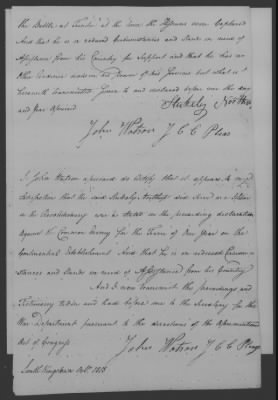 the Battle at Trenton at the time the Hessians were Captured
And that he is in reduced Circumstances and Stands in need of
Assistance from his Country for Support and that he has no
other Evidence now in his Power of his Services but what is
herewith transmitted Sworn to and declared before me the day
and Year aforesaid
Stukely
John Watson J C C Pleas
I John Watson aforesaid do Certify that it appears to my
Satisfaction that the said Stukely did Serve as
in the Revolutionary war as stated in the preceeding declaration
against the Common Enemy for the Term of One Year on the
Continental Establishment And that he is in reduced Circum-
stances and Stands in need of Assistance from his Country
And I now transmit the proceedings and
Testimony taken and had before me to the Secretary for the
War Department pursuant to the directions of the aforementioned
Act of Congress
John Watson J C C Pleas
South Kingstown 1818